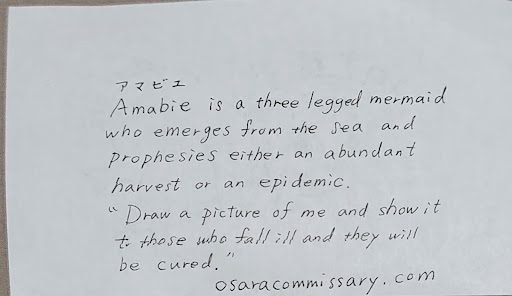 アマビエ
Amabie is a three legged mermaid
who emerges from the sea and
prophesies either an abundant
harvest or an epidemic.
"Draw a picture of me and show it
to those who fall ill and they will
be cured."
osaracommissary.com